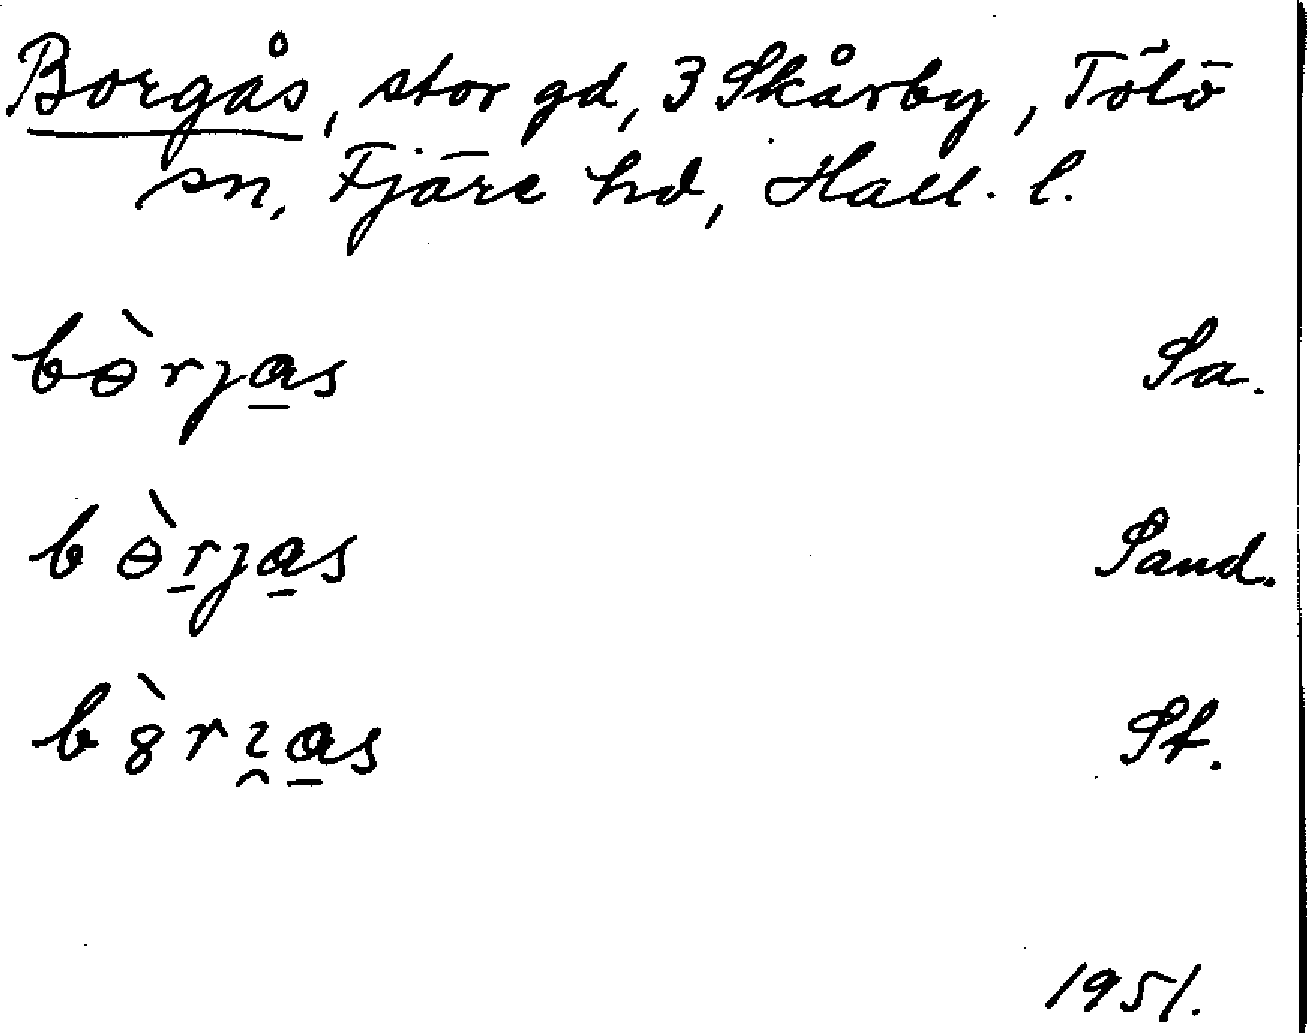 Borgås, stor gd, 3 Skårby, Tölö
sn, Fjäre hd, Hall. l.
bɵ̀rȷa̲s Sa.
bɵ̀r̲ȷa̲s Sand.
b8̀rɿ̯a̲s St.
1951.